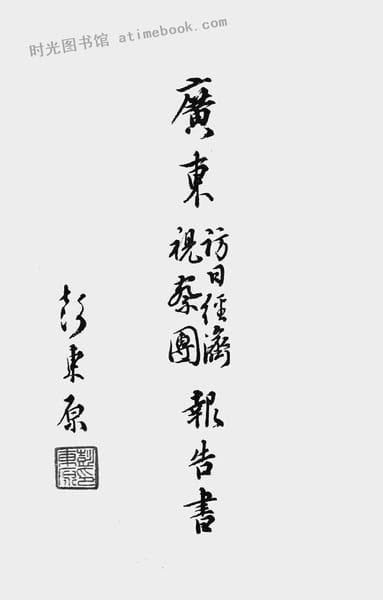 时光图书馆 atimebook.com
廣東
訪日經濟
視察團
報告書
彭東原
彭印
東原